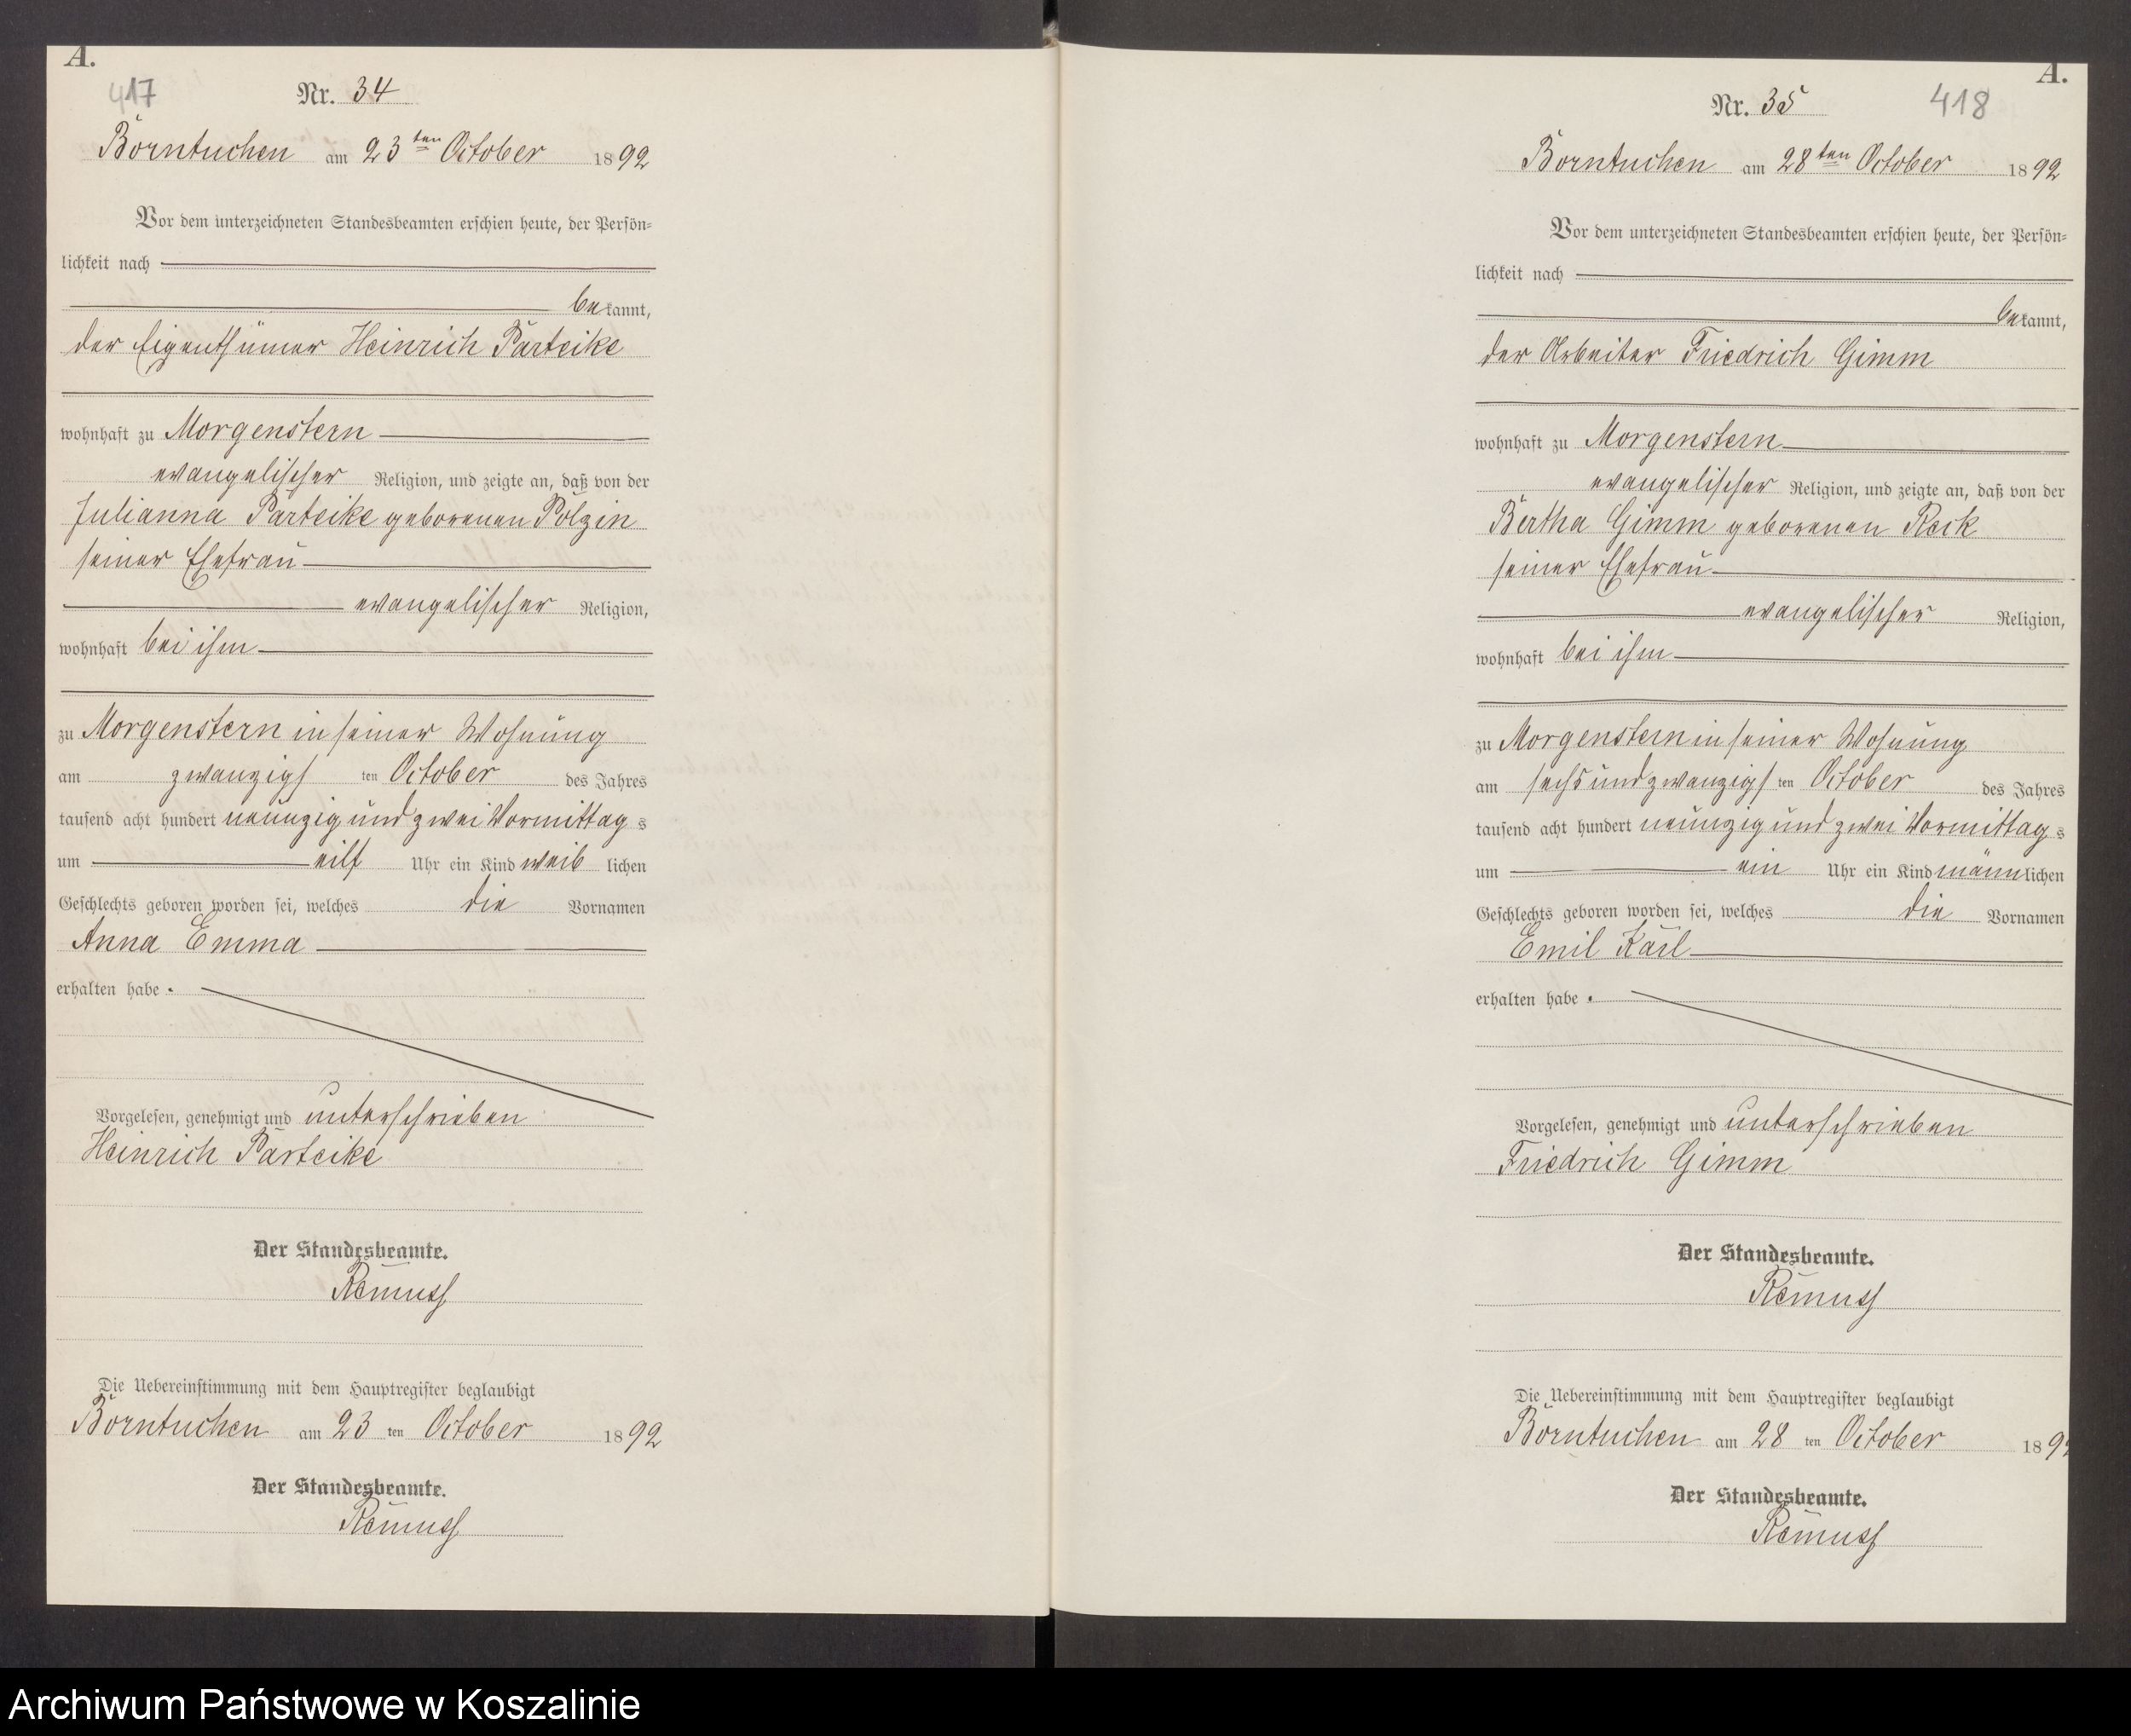 A.
417
Nr. 34
Borntuchen am 23ten October 1892
Vor dem unterzeichneten Standesbeamten erschien heute, der Persön=
lichkeit nach
bekannt,
der Eigenthümer Heinrich Parteike
wohnhaft zu Morgenstern
evangelischer Religion, und zeigte an, daß von der
Julianna Parteike geborenen Polzin
seiner Ehefrau
evangelischer Religion,
wohnhaft bei ihm
zu Morgenstern in seiner Wohnung
am zwanzigsten October des Jahres
tausend acht hundert neunzig und zwei Vormittags
um eilf Uhr ein Kind weiblichen
Geschlechts geboren worden sei, welches die Vornamen
Anna Emma
erhalten habe.
Vorgelesen, genehmigt und unterschrieben
Heinrich Parteike
Der Standesbeamte.
Remuss
Die Uebereinstimmung mit dem Hauptregister beglaubigt
Borntuchen am 23 ten October 1892
Der Standesbeamte.
Remuss
A.
418
Nr. 35
Borntuchen am 28ten October 1892
Vor dem unterzeichneten Standesbeamten erschien heute, der Persön=
lichkeit nach
bekannt,
der Arbeiter Friedrich Gimm
wohnhaft zu Morgenstern
evangelischer Religion, und zeigte an, daß von der
Bertha Gimm geborenen Reck
seiner Ehefrau
evangelischer Religion,
wohnhaft bei ihm
zu Morgenstern in seiner Wohnung
am sechsundzwanzigsten October des Jahres
tausend acht hundert neunzig und zwei Vormittags
um ein Uhr ein Kind männlichen
Geschlechts geboren worden sei, welches die Vornamen
Emil Karl
erhalten habe.
Vorgelesen, genehmigt und unterschrieben
Friedrich Gimm
Der Standesbeamte.
Remuss
Die Uebereinstimmung mit dem Hauptregister beglaubigt
Borntuchen am 28 ten October 189
Der Standesbeamte.
Remuss
Archiwum Państwowe w Koszalinie